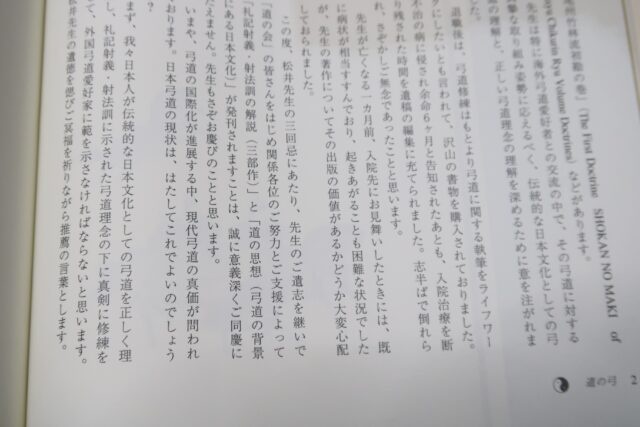 道の弓 2
州竹林流初勘の巻」(The First Doctrine SHOKAN NO MAKI of
Ryu Volume Doctrines) などがあります。
先生は特に海外弓道愛好者との交流の中で、その弓道に対する
な取り組み姿勢に応えるべく、伝統的な日本文化としての弓
の理解と、正しい弓道理念の理解を深めるために意を注がれま
した。
退職後は、弓道修練はもとより弓道に関する執筆をライフワー
クにしたいとも言われて、沢山の書物を購入されておりました。
不治の病に侵され余命6ヶ月と告知されたあとも、入院治療を断
り残された時間を遺稿の編集に充てられました。志半ばで倒れら
れ、さぞかしご無念であったことと思います。
先生が亡くなる一カ月前、入院先にお見舞いしたときには、既
に病状が相当すすんでおり、起きあがることも困難な状況でした
が、先生の著作についてその出版の価値があるかどうか大変心配
しておられました。
この度、松井先生の三回忌にあたり、先生のご遺志を継いで
「道の会」の皆さんをはじめ関係各位のご努力とご支援によって
「礼記射義・射法訓の解説（三部作）」と「道の思想（弓道の背景
にある日本文化）」が発刊されますことは、誠に意義深くご同慶に
たえません。先生もさぞお慶びのことと思います。
いまや、弓道の国際化が進展する中、現代弓道の真価が問われ
ております。日本弓道の現状は、はたしてこれでよいのでしょう
?
まず、我々日本人が伝統的な日本文化としての弓道を正しく理
し、礼記射義・射法訓に示された弓道理念の下に真剣に修練を
て、外国弓道愛好家に範を示さなければならないと思います。
松井先生の遺徳を偲びご冥福を祈りながら推薦の言葉とします。